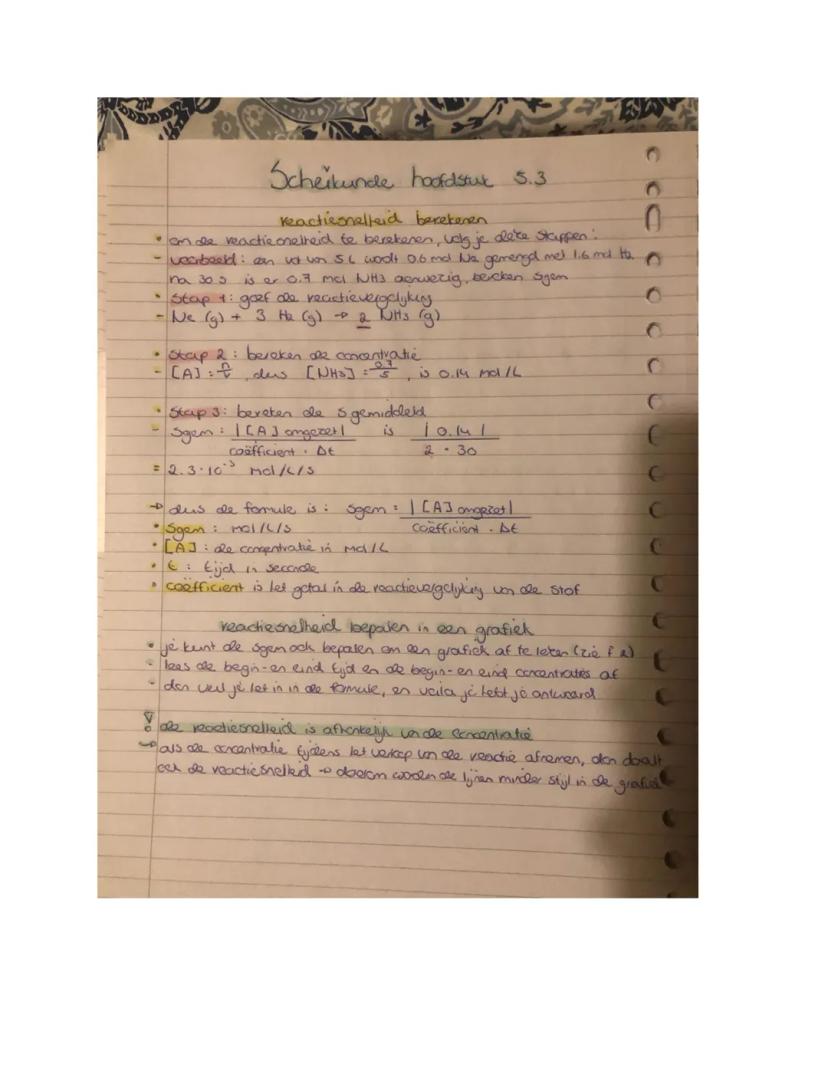 Scheikunde hoofdstuk 5.3
reactiesnelheid berekenen
• om de reactiesnelheid te berekenen, volg je deze stappen:
- voorbeeld: een vat van 5 L wordt 0.6 mol N2 gemengd met 1.6 mol H2
na 30 s is er 0.7 mol NH3 aanwezig, bereken sgem
• Stap 1: geef de reactievergelijking
- N2 (g) + 3 H2 (g) → 2 NH3 (g)
• Stap 2: bereken de concentratie
- [A] = n/v, dus [NH3] = 0.7/5, is 0.14 mol/L
• Stap 3: bereken de s gemiddeld
- sgem: |[A] omgezet| / coëfficient · Δt is |0.14| / 2 · 30
= 2.3·10⁻³ mol/L/s
→ dus de formule is: sgem = |[A] omgezet| / coëfficient · Δt
• sgem: mol/L/s
• [A]: de concentratie in mol/L
• t: tijd in seconde
• coëfficient is het getal in de reactievergelijking van de stof
reactiesnelheid bepalen in een grafiek
• je kunt de sgem ook bepalen om een grafiek af te lezen (zie f 2)
- lees de begin- en eind tijd en de begin- en eind concentraties af
- dan vul je het in in de formule, en voila je hebt je antwoord
! de reactiesnelheid is afhankelijk van de concentratie
→ als de concentratie tijdens het verloop van de reactie afnemen, dan daalt
ook de reactiesnelheid → daarom worden de lijnen minder stijl in de grafiek